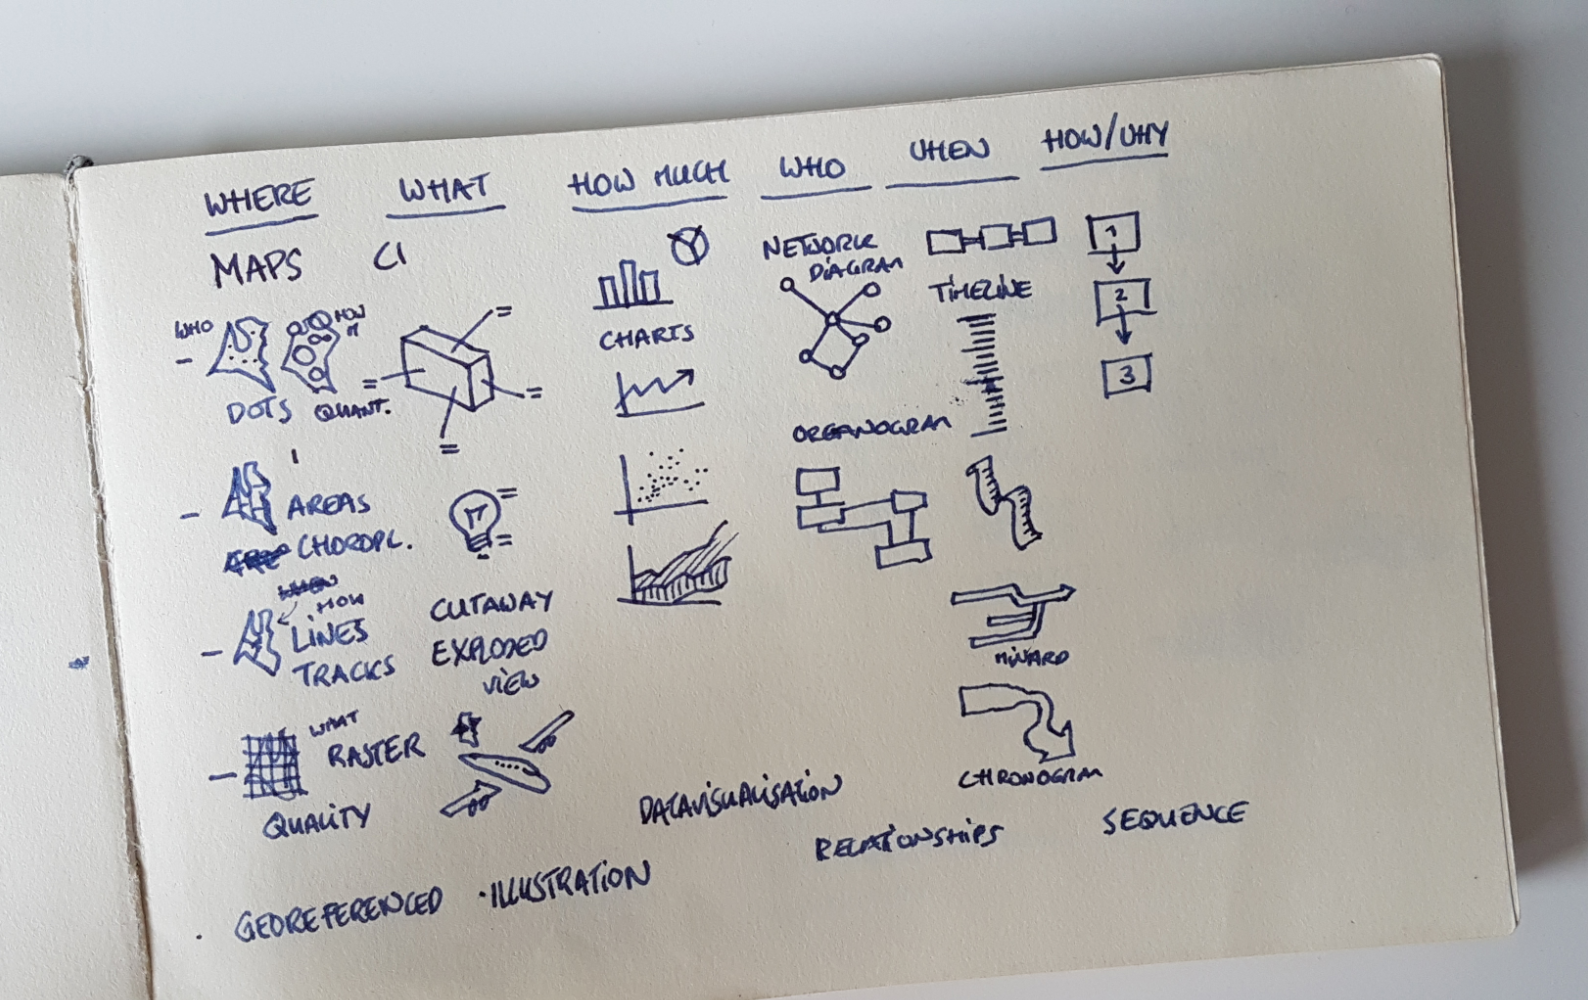 WHERE
MAPS
WHO
HOW
DOTS QUANT.
AREAS
CHOROPL.
HOW
LINES
TRACKS
WHAT
RASTER
QUALITY
GEOREFERENCED
WHAT
CUTAWAY
EXPLODED
VIEW
·ILLUSTRATION
HOW MUCH
CHARTS
DATAVISUALISATION
WHO
NETWORK
DIAGRAM
ORGANOGRAM
RELATIONSHIPS
WHEN
TIMELINE
MINARD
CHRONOGRAM
HOW/WHY
1
2
3
SEQUENCE